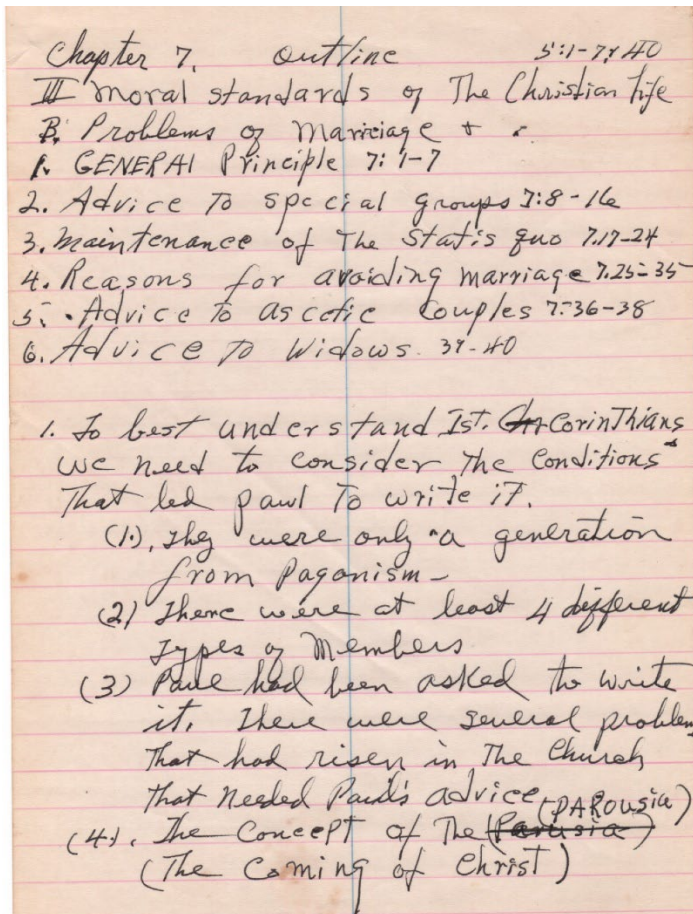 Chapter 7. Outline 5:1-7:40
III Moral standards of The Christian life
B. Problems of Marriage +
1. GENERAl Principle 7:1-7
2. Advice To special groups 7:8-16
3. Maintenance of The Statis quo 7.17-24
4. Reasons for avoiding marriage 7.25-35
5. Advice To Ascetic Couples 7:36-38
6. Advice To Widows. 39-40
1. To best understand Ist. Corinthians
we need to consider The Conditions
That led pawl To write it.
(1). They were only a generation
from Paganism-
(2) There were at least 4 different
Types of Members
(3) Paul had been asked to write
it. There were several problems
That had risen in The Church
That needed Paul's advice
(4). The Concept of The (Parusia) (PAROUSIA)
(The Coming of Christ)